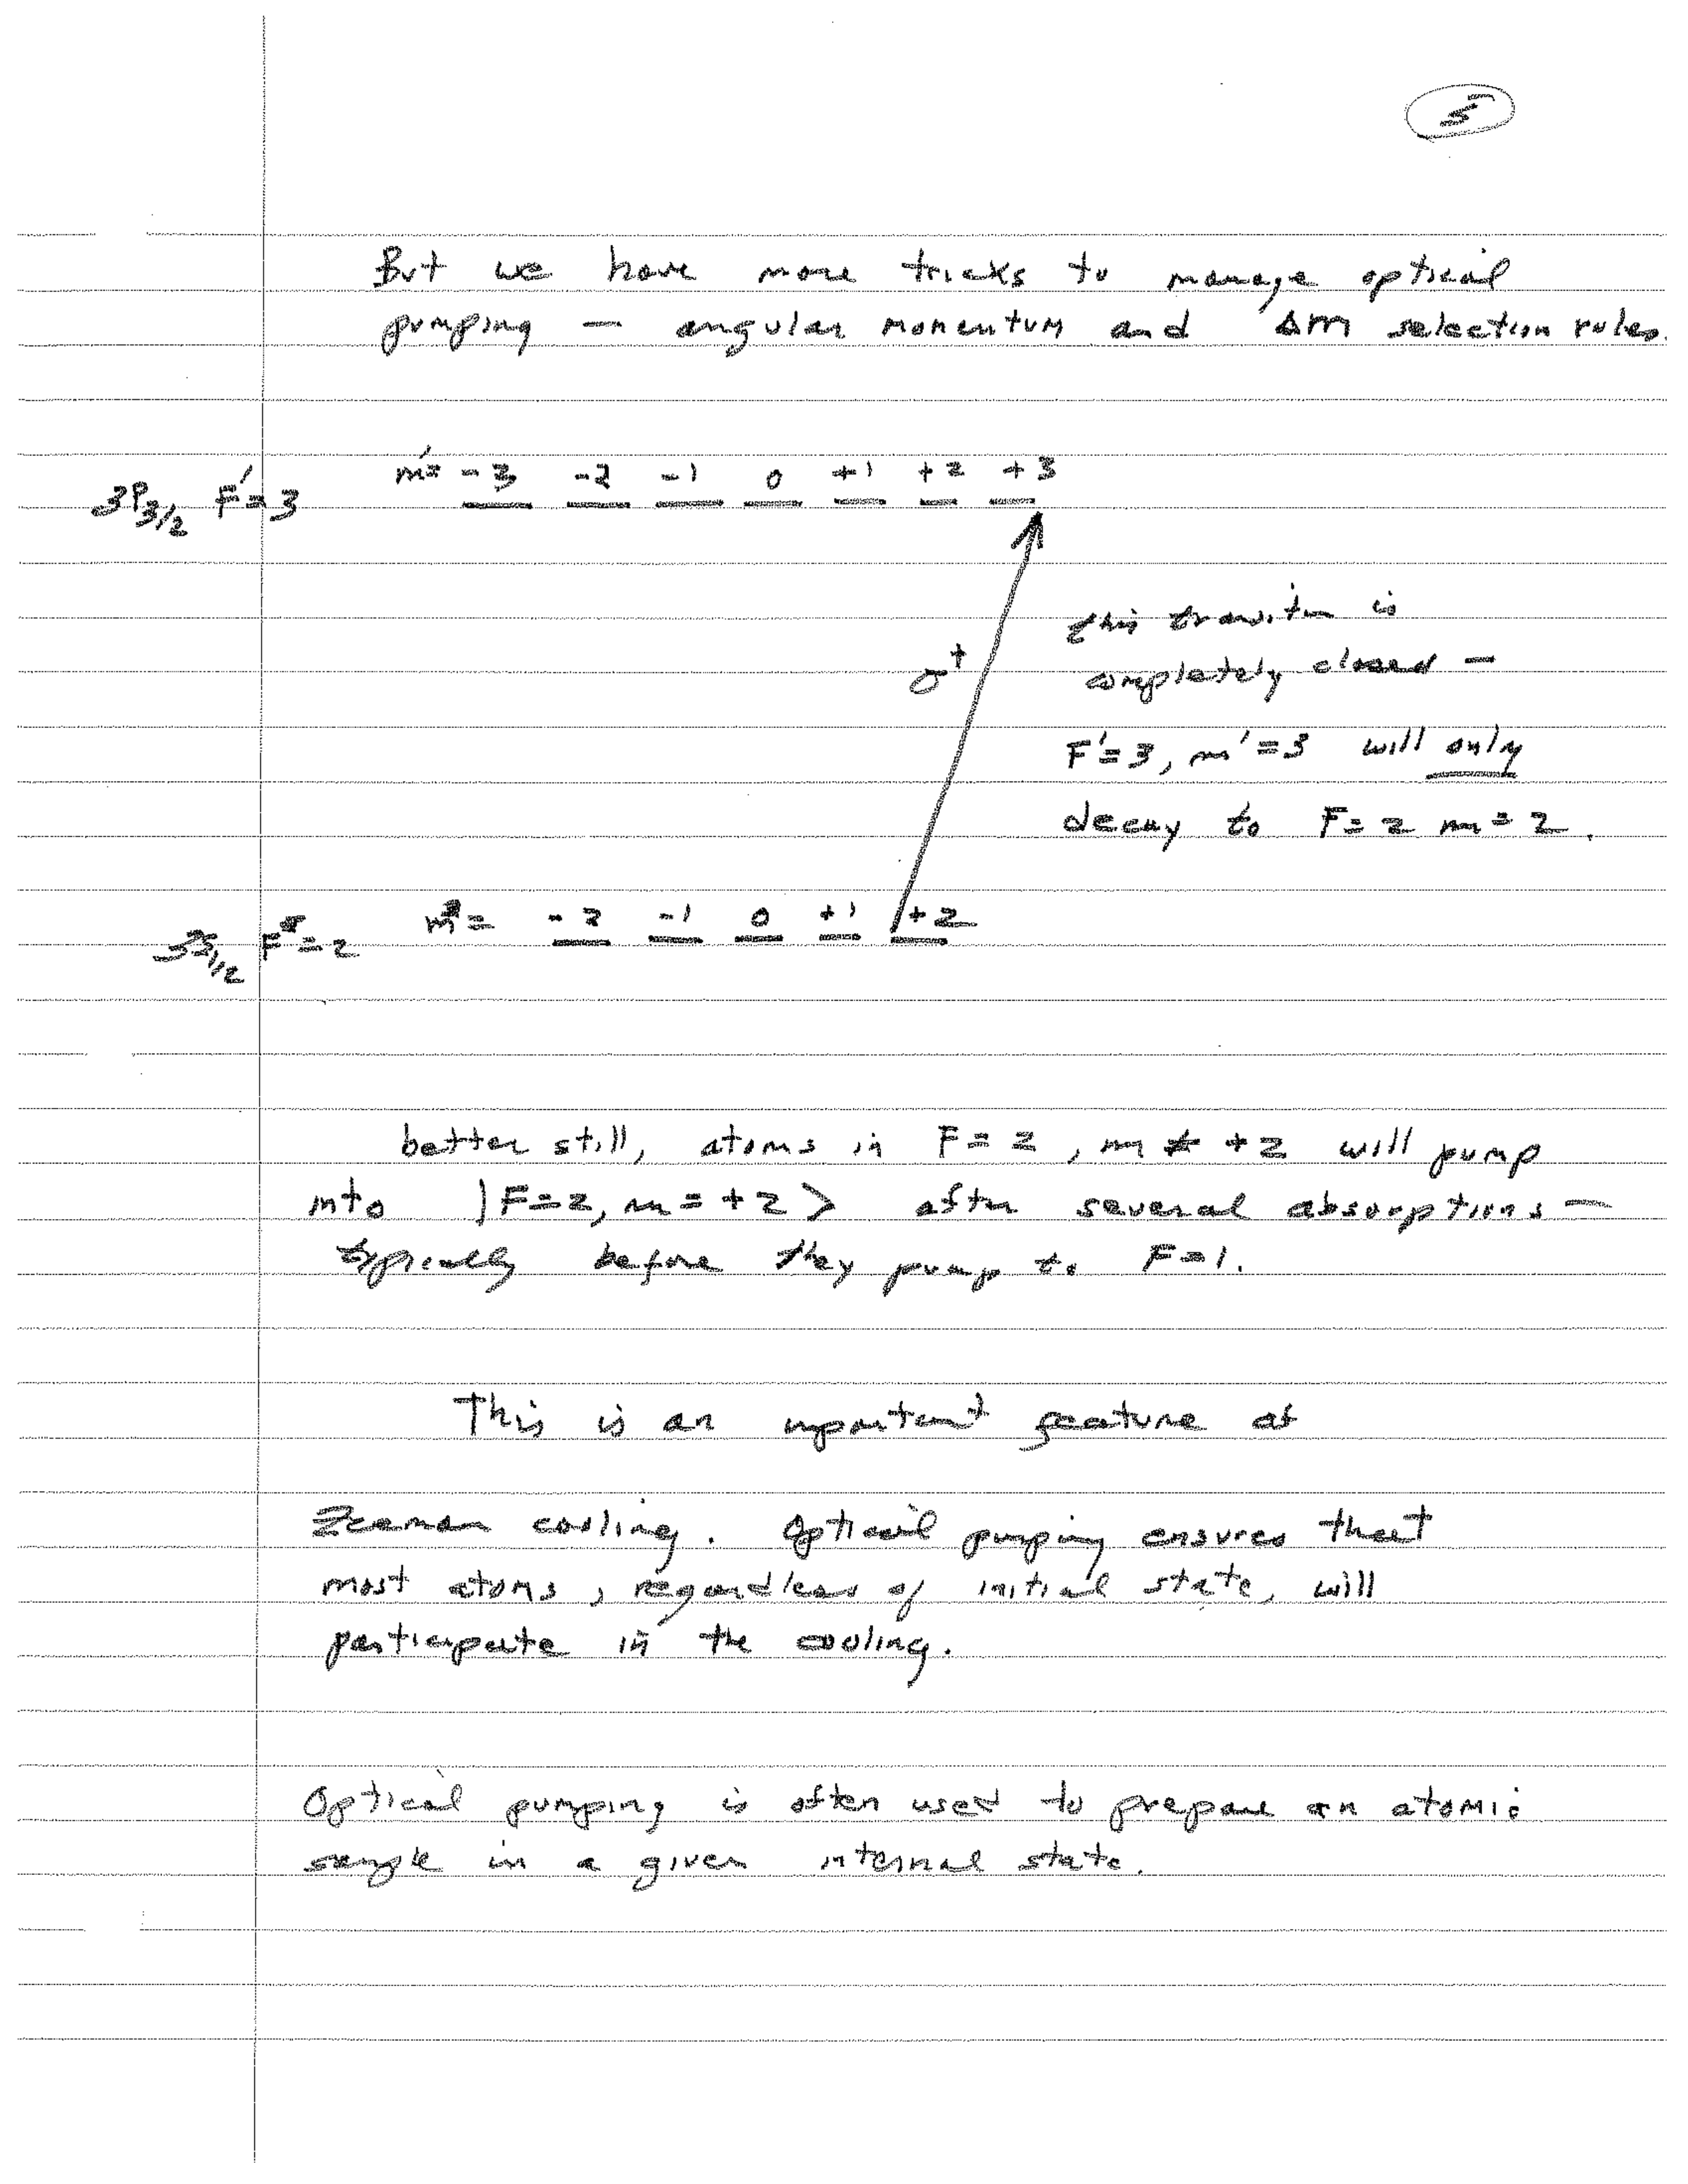 5
But we have more tricks to manage optical
pumping — angular momentum and Δm selection rules.
m'= -3 -2 -1 0 +1 +2 +3
3P3/2 F'=3
this transition is
σ+
completely closed —
F'=3, m'=3 will only
decay to F=2 m=2.
m= -2 -1 0 +1 +2
3S1/2 F=2
better still, atoms in F=2, m≠+2 will pump
into |F=2, m=+2> after several absorptions —
typically before they pump to F=1.
This is an important feature of
Zeeman cooling. Optical pumping ensures that
most atoms, regardless of initial state, will
participate in the cooling.
Optical pumping is often used to prepare an atomic
sample in a given internal state.